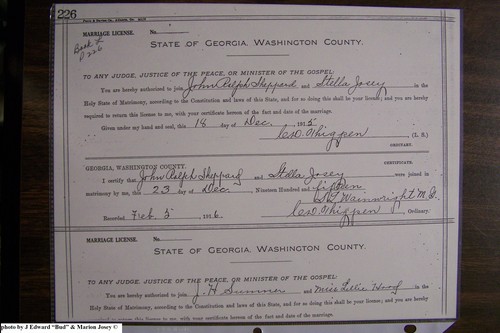 226
MARRIAGE LICENSE.
Book L
P 226
STATE OF GEORGIA, WASHINGTON COUNTY.
TO ANY JUDGE, JUSTICE OF THE PEACE, OR MINISTER OF THE GOSPEL:
You are hereby authorized to join John Ralph Sheppard and Stella Josey in the
Holy State of Matrimony, according to the Constitution and laws of this State, and for so doing this shall be your license; and you are hereby
required to return this license to me, with your certificate hereon of the fact and date of the marriage.
Given under my hand and seal, this 18 day of Dec. 1915
Geo. D. Thigpen (L. S.)
Ordinary.
CERTIFICATE.
GEORGIA, WASHINGTON COUNTY.
I certify that John Ralph Sheppard and Stella Josey were joined in
matrimony by me, this 23 day of Dec., Nineteen Hundred and fifteen
Wainwright M. G.
Recorded Feb 5 1916. Geo. D. Thigpen Ordinary.
MARRIAGE LICENSE.
STATE OF GEORGIA, WASHINGTON COUNTY.
TO ANY JUDGE, JUSTICE OF THE PEACE, OR MINISTER OF THE GOSPEL:
You are hereby authorized to join J. H. Summer and Miss Lillie Hood in the
Holy State of Matrimony, according to the Constitution and laws of this State, and for so doing this shall be your license; and you are hereby
required to return this license to me, with your certificate hereon of the fact and date of the marriage.
photo by J Edward "Bud" & Marion Josey ©